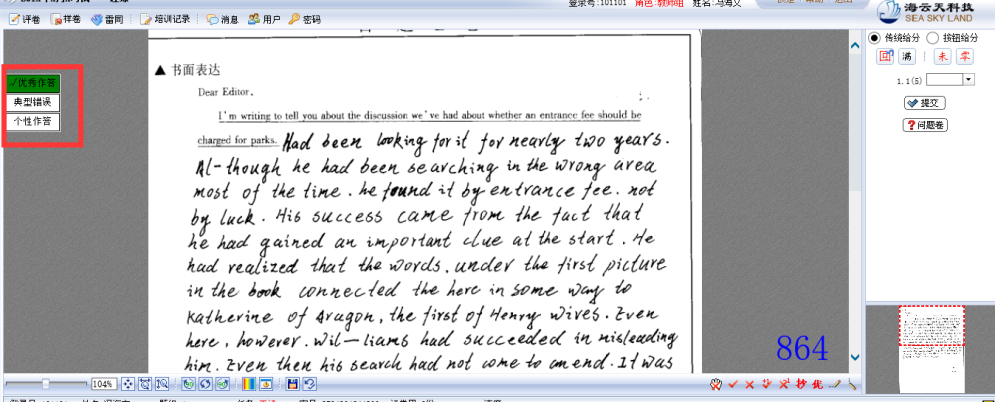 登录号:101101 角色:教师组 姓名:冯海义
海云天科技
SEA SKY LAND
评卷 样卷 雷同 培训记录 消息 用户 密码
传统给分 按钮给分
回 满 未 零
1.1(5)
提交
问题卷
√优秀作答
典型错误
个性作答
▲ 书面表达
Dear Editor,
I'm writing to tell you about the discussion we've had about whether an entrance fee should be
charged for parks. Had been looking for it for nearly two years.
Al-though he had been searching in the wrong area
most of the time. he found it by entrance fee. not
by luck. His success came from the fact that
he had gained an important clue at the start. He
had realized that the words, under the first picture
in the book connected the here in some way to
Katherine of Aragon, the first of Henry wives. Even
here, however. Wil-liams had succeeded in misleading
him. Even then his search had not come to an end. It was
864
104%
抄 优